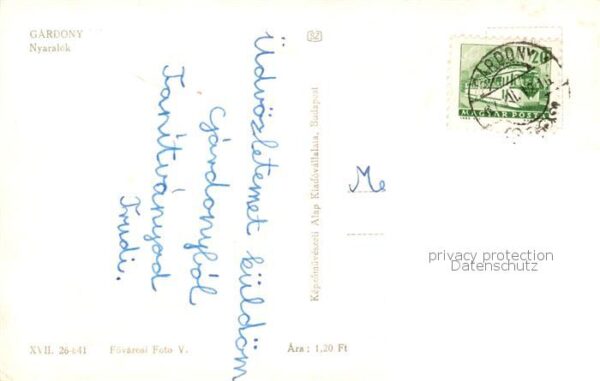 GÁRDONY
Nyaralók
Üdvözletemet küldöm
Gárdonyból
Tanítványod
Trudi.
Képzőművészeti Alap Kiadóvállalata, Budapest
Me
GÁRDONY
MAGYAR POSTA
privacy protection
Datenschutz
Fővárosi Foto V.
Ára: 1,20 Ft